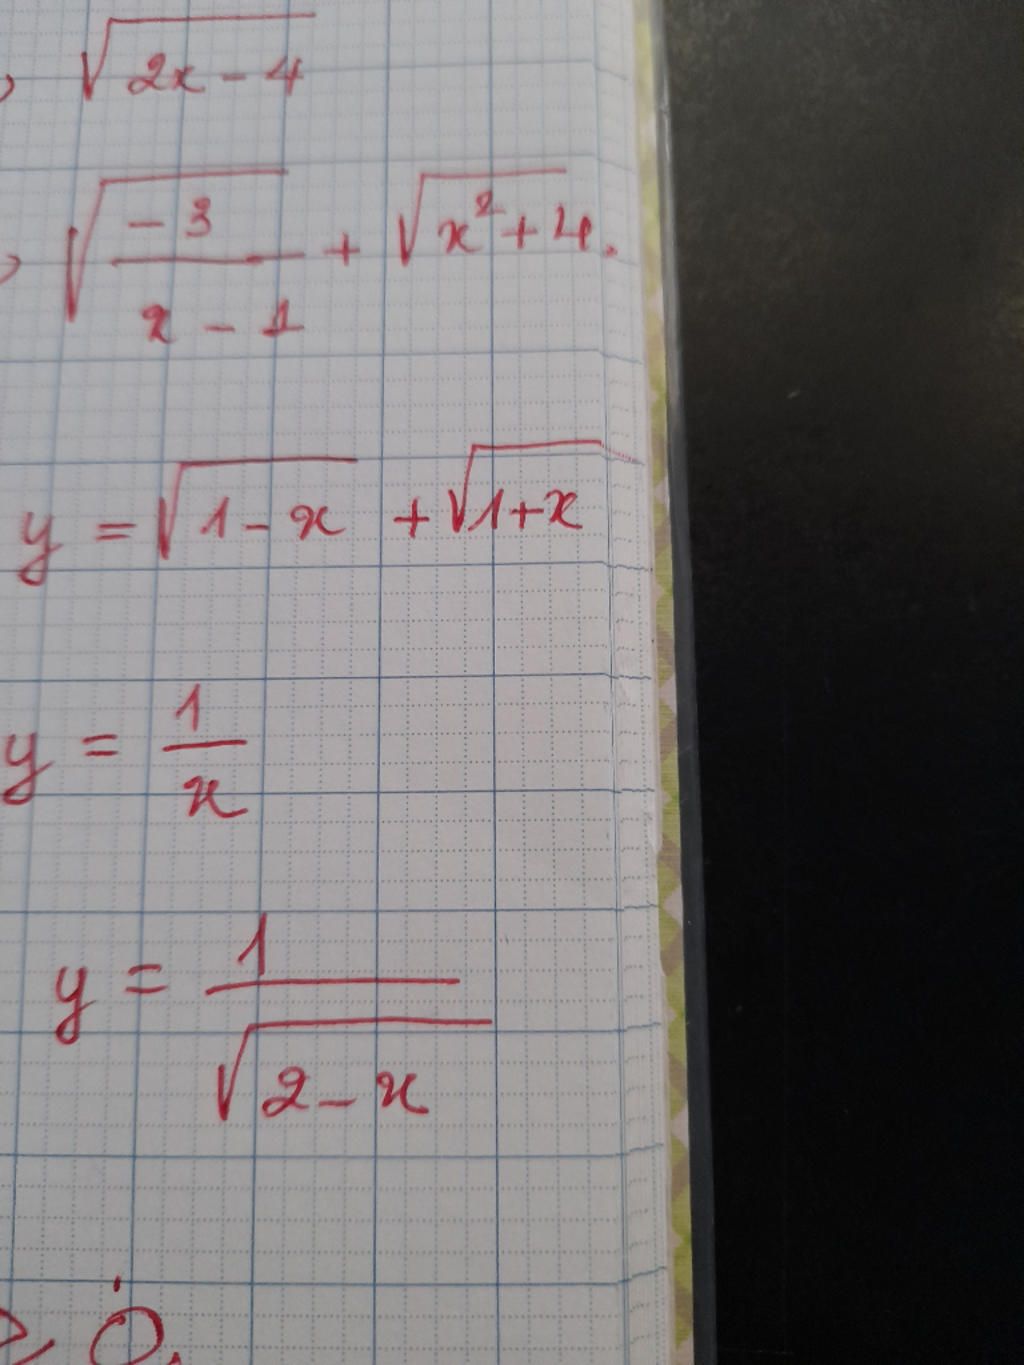 ) √(2x - 4)
) √(-3/(x - 1)) + √(x² + 4).
y = √(1 - x) + √(1 + x)
y = 1/x
y = 1/√(2 - x)